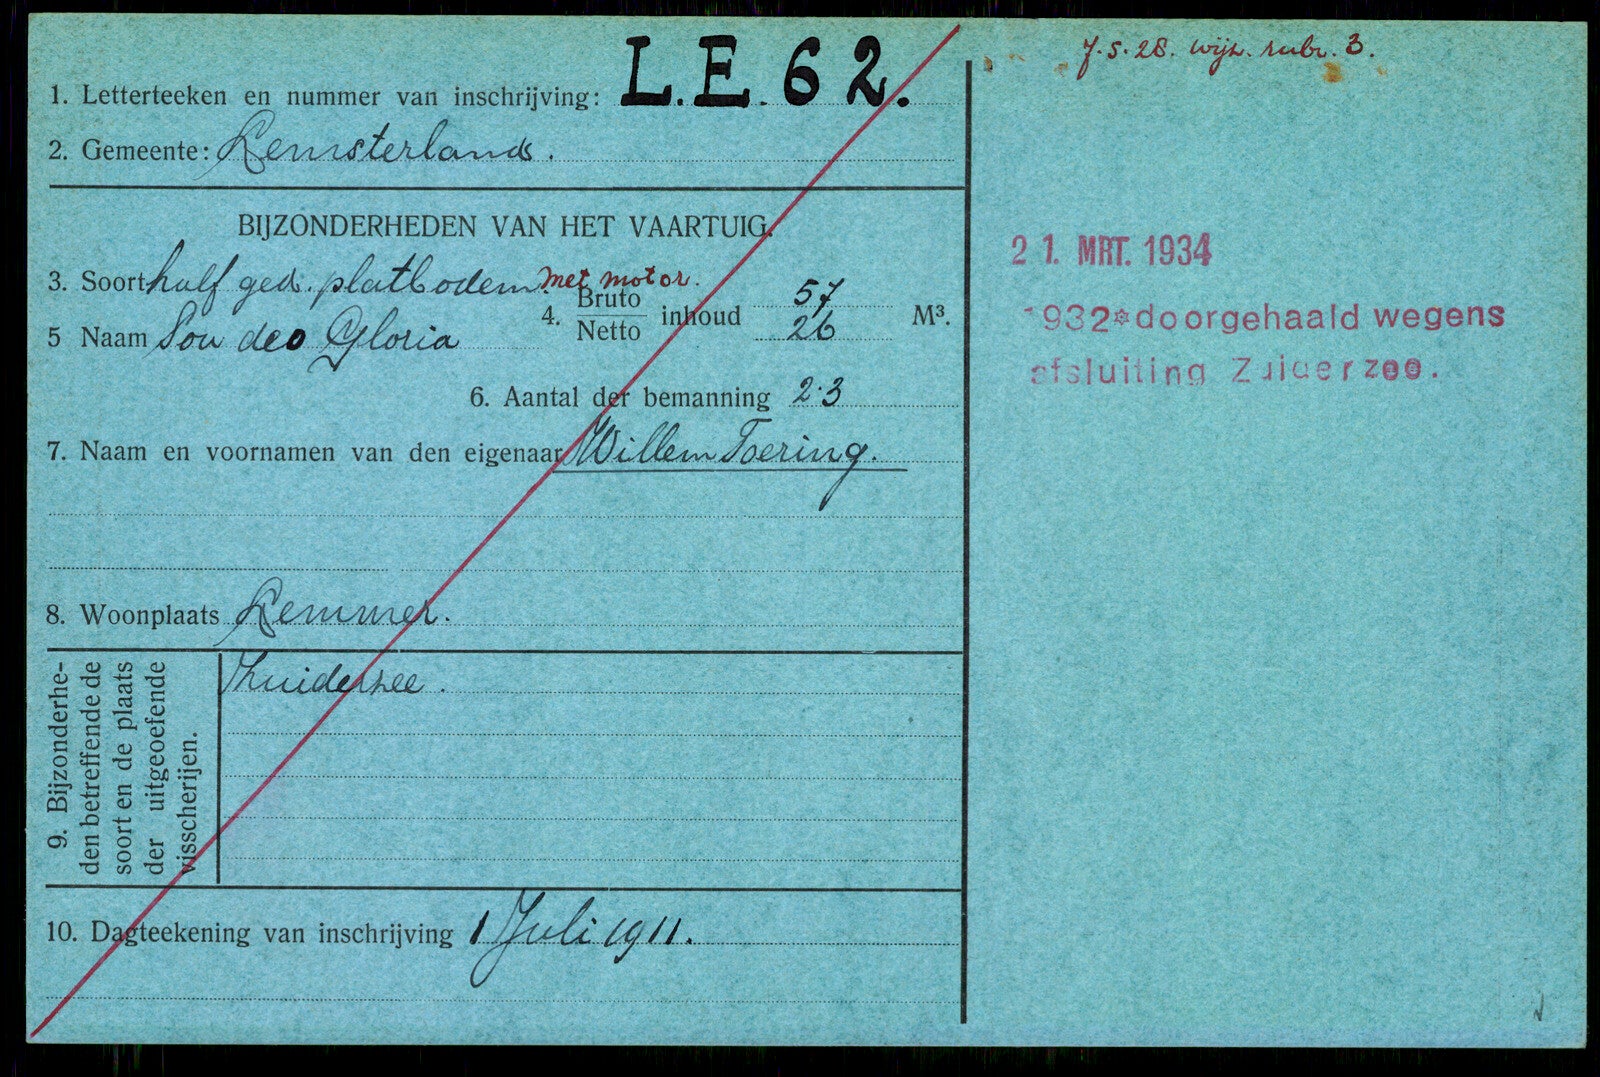 7.5.28. wijz. rubr. 3.
1. Letterteeken en nummer van inschrijving: L.E. 62.
2. Gemeente: Lemsterland.
BIJZONDERHEDEN VAN HET VAARTUIG.
3. Soort half ged. platbodem. met motor.
4. Bruto inhoud 57 M³.
Netto 26
5 Naam Sou deo Gloria
6. Aantal der bemanning 2·3
7. Naam en voornamen van den eigenaar Willem Toering.
8. Woonplaats Lemmer.
9. Bijzonderhe-
den betreffende de
soort en de plaats
der uitgeoefende
visscherijen.
Zuiderzee.
10. Dagteekening van inschrijving 1 Juli 1911.
21. MRT. 1934
1932*doorgehaald wegens
afsluiting Zuiderzee.